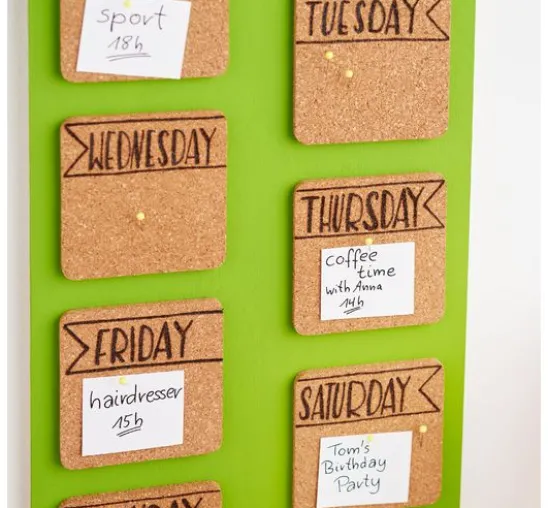 sport
18h
TUESDAY
WEDNESDAY
THURSDAY
coffee
time
with Anna
14h
FRIDAY
hairdresser
15h
SATURDAY
Tom's
Birthday
Party